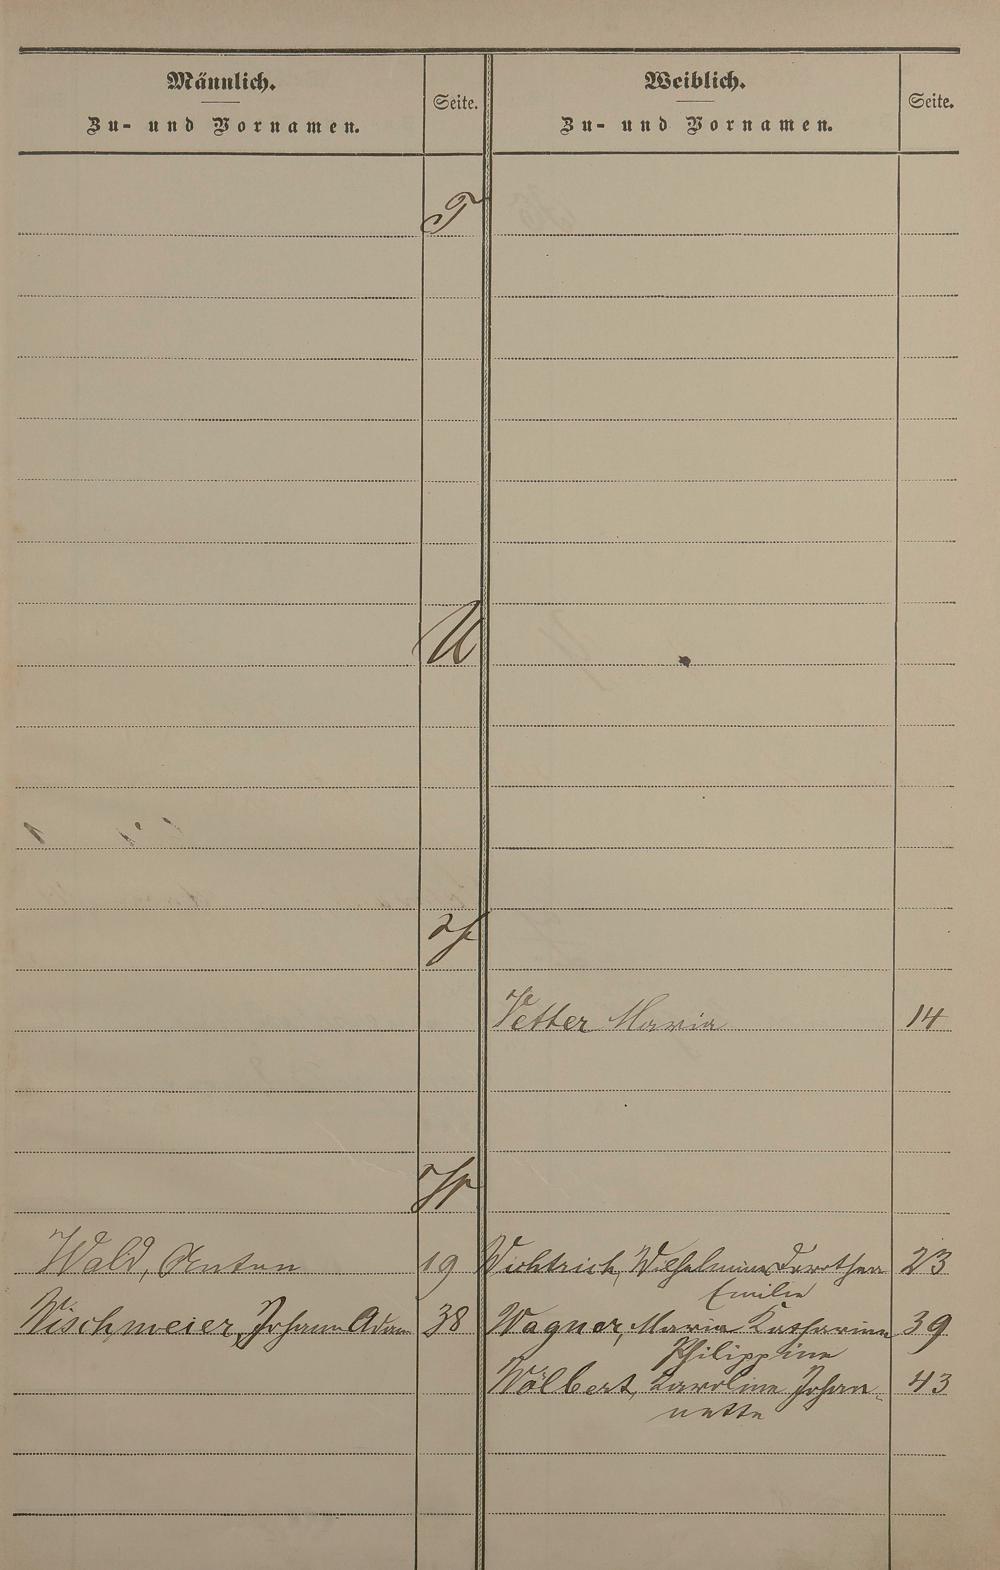 Männlich.
Zu- und Vornamen.
Seite.
Weiblich.
Zu- und Vornamen.
Seite.
T
U
V
Vetter Maria 14
W
Wald, Anton 19 Wilhelmine Dorothea 23
Emilie
Wischmeier, Johann Adam 38 Wagner, Maria Katharina 39
Philippine
Wölbert, Karoline Johan- 43
nette